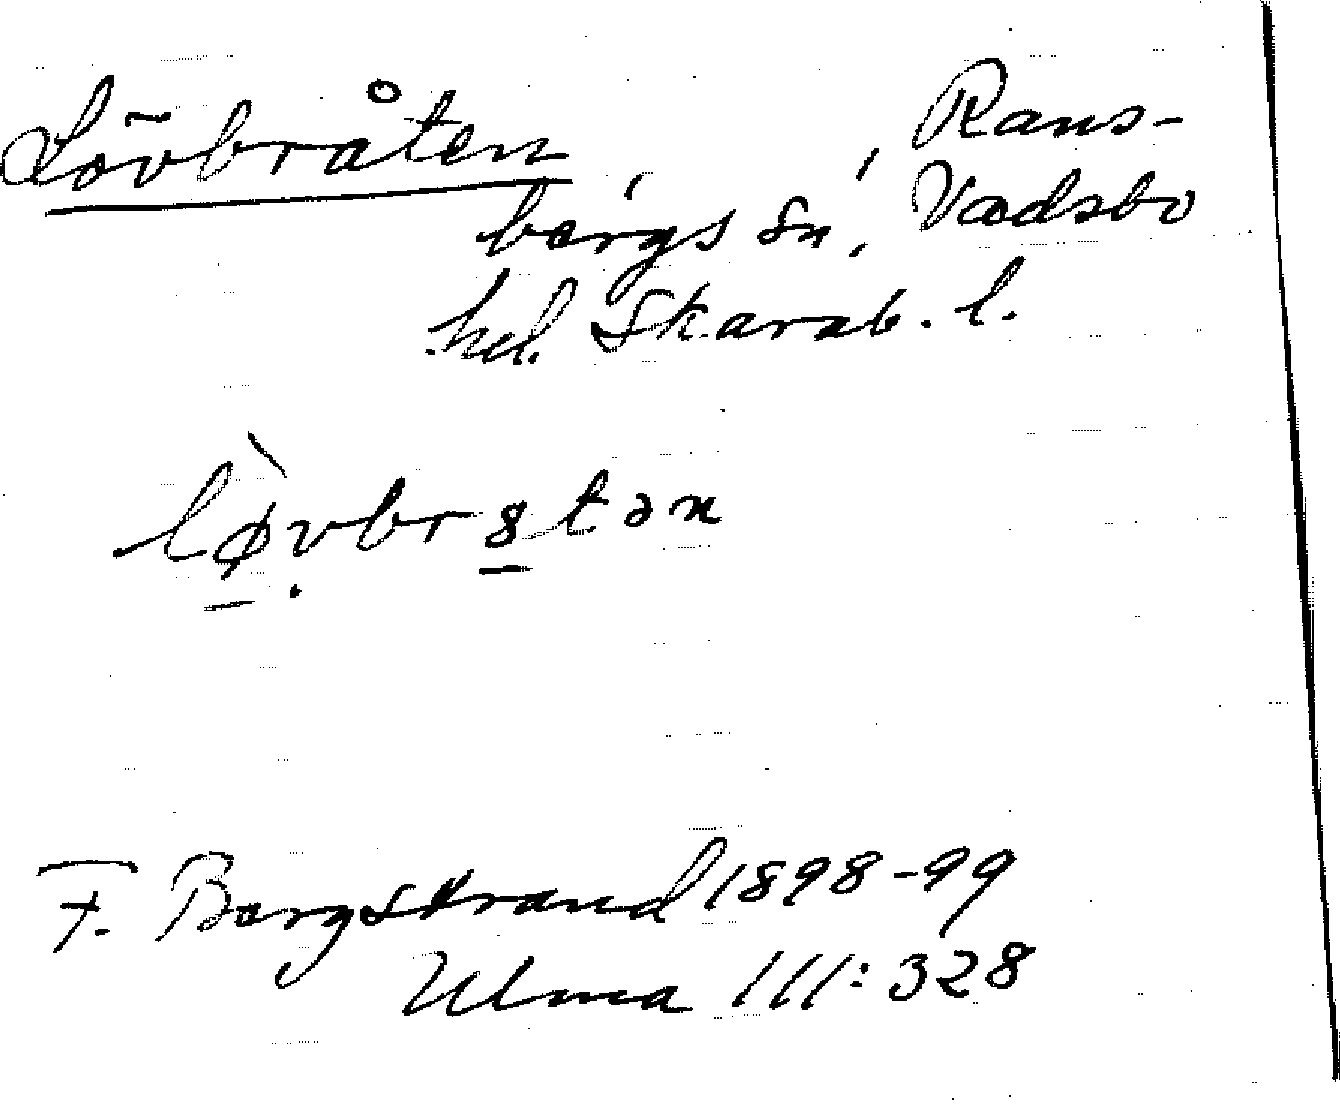 Lövbråten, Rans-
bergs sn, Vadsbo
hd. Skarab. l.
lø̀vbr8tən
F. Bergstrand 1898-99
Ulma 111:328